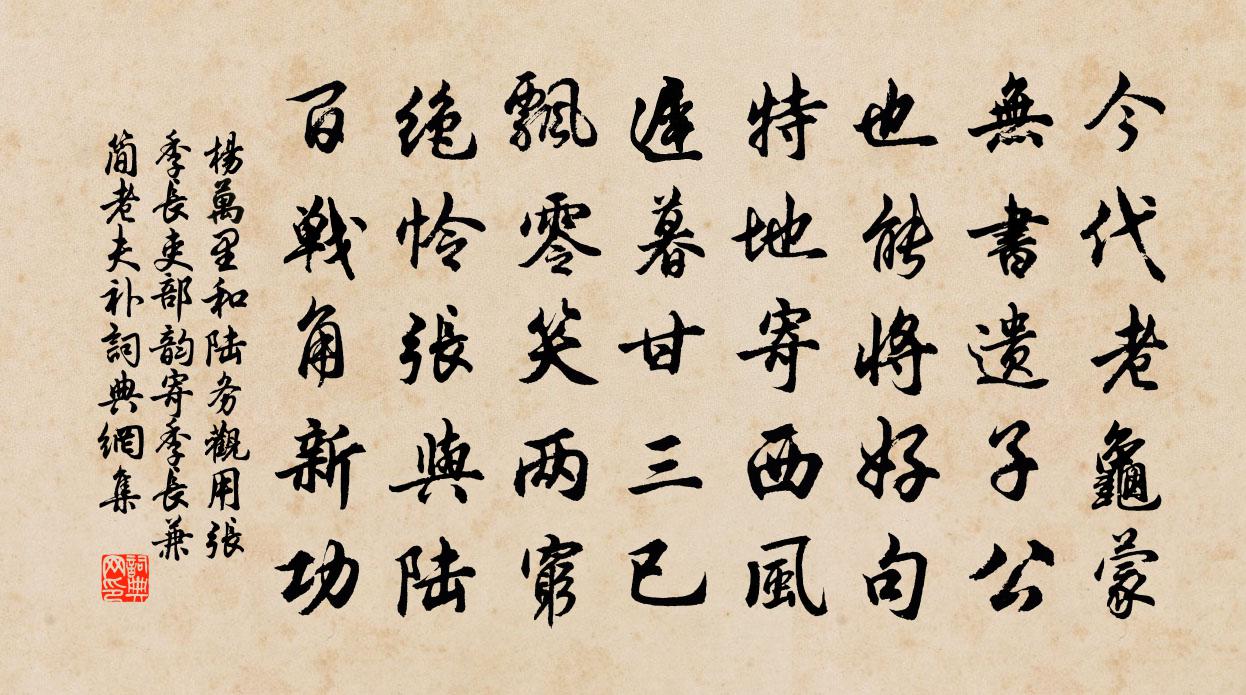 今代老龜蒙
無書遗子公
也能將好句
特地寄西風
遲暮甘三已
飄零笑两窮
绝怜張與陆
百戦角新功
楊萬里和陆务觀用張
季長吏部韵寄季長兼
简老夫补詞典網集
詞典网印